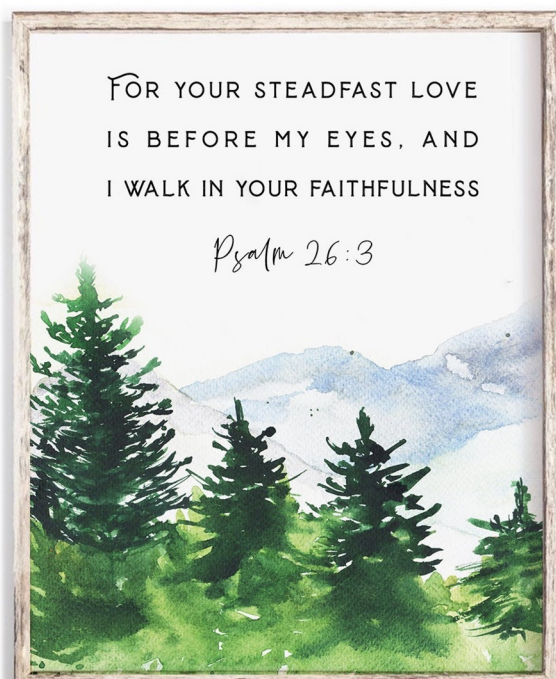 FOR YOUR STEADFAST LOVE
IS BEFORE MY EYES, AND
I WALK IN YOUR FAITHFULNESS
Psalm 26:3